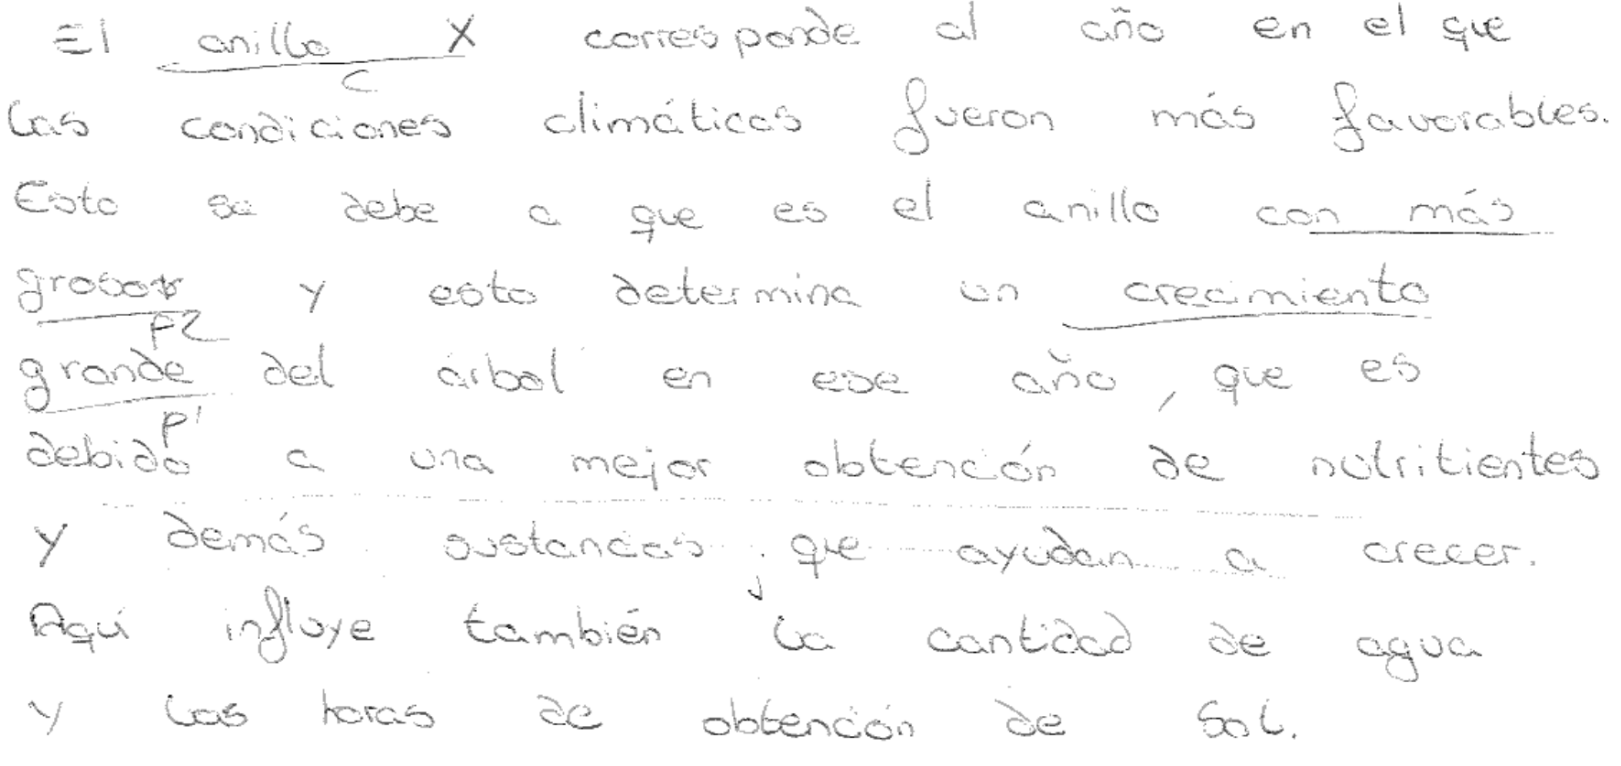 El anillo X corresponde al año en el que
C
las condiciones climáticas fueron más favorables.
Esto se debe a que es el anillo con más
grosor y esto determina un crecimiento
P2
grande del árbol en ese año, que es
P1
debido a una mejor obtención de nutritientes
y demás sustancias que ayudan a crecer.
Aquí influye también la cantidad de agua
y las horas de obtención de Sol.